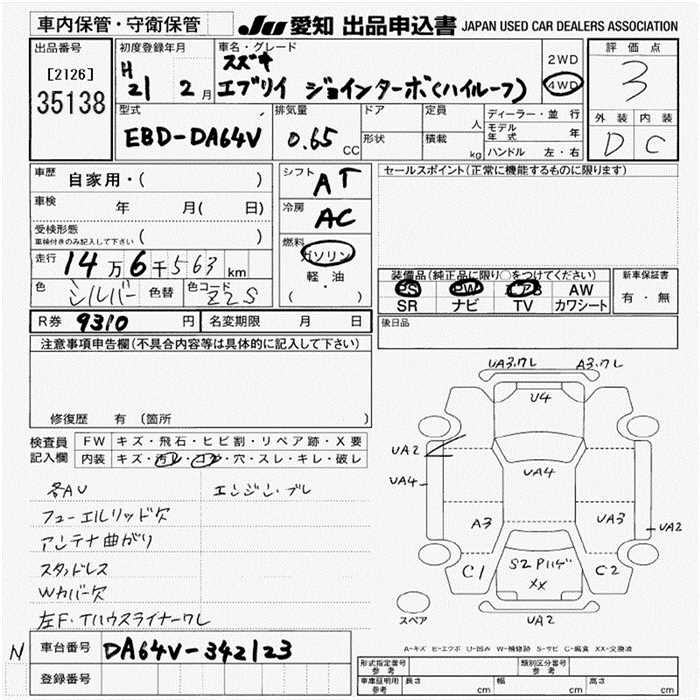 車内保管・守衛保管
JU 愛知 出品申込書 JAPAN USED CAR DEALERS ASSOCIATION
出品番号
[2126]
35138
初度登録年月
H
21 2月
車名・グレード
スズキ
エブリイ ジョインターボ(ハイルーフ)
2WD
4WD
評価点
3
外装 内装
D C
型式
EBD-DA64V
排気量
0.65 CC
ドア
形状
定員
人
積載
kg
ディーラー・並行
モデル年式 年
ハンドル 左・右
車歴 自家用・( )
車検 年 月( 日)
受検形態
車検付きのみ記入して下さい ( )
走行 14万6千563km
色 シルバー 色替 色コード Z2S
シフト
AT
冷房
AC
燃料
ガソリン
軽・油
( )
セールスポイント(正常に機能するものに限ります)
装備品(純正品に限り○をつけてください)
PS PW エアB AW
SR ナビ TV カワシート
新車保証書
有・無
R券 9310円 名変期限 月 日
後日品
注意事項申告欄(不具合内容等は具体的に記入して下さい)
修復歴 有 (箇所
検査員
記入欄
FW キズ・飛石・ヒビ割・リペア跡・X要
内装 キズ・汚レ・コゲ・穴・スレ・キレ・破レ
各AU
エンジン・ブレ
フューエルリッド欠
アンテナ曲がり
スタッドレス
Wカバー欠
左F・Tハウスライナーワレ
UA3.ワレ A3.ワレ
U4
UA2
UA4
UA4
A3
UA3
UA2
C1
C2
XX
UA2
スペア
A-キズ E-エクボ U-凹み W-補修跡 S-サビ C-腐食 XX-交換済
N
車台番号 DA64V-342123
登録番号
形式指定番号
参考
類別区分番号
参考
車庫証明用
参考
長さ cm 幅 cm 高さ cm